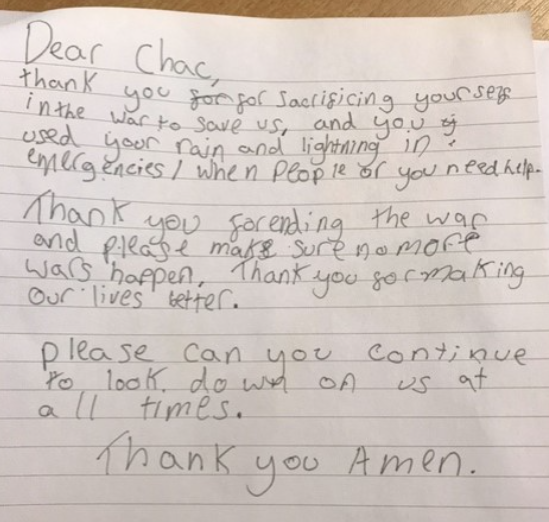 Dear Chac,
thank you for for sacrisicing yourself
in the war to save us, and you
used your rain and lightning in
emergencies / when people or you need help.
Thank you for ending the war
and please make sure no more
wars happen. Thank you for making
our lives better.
please can you continue
to look down on us at
all times.
Thank you Amen.